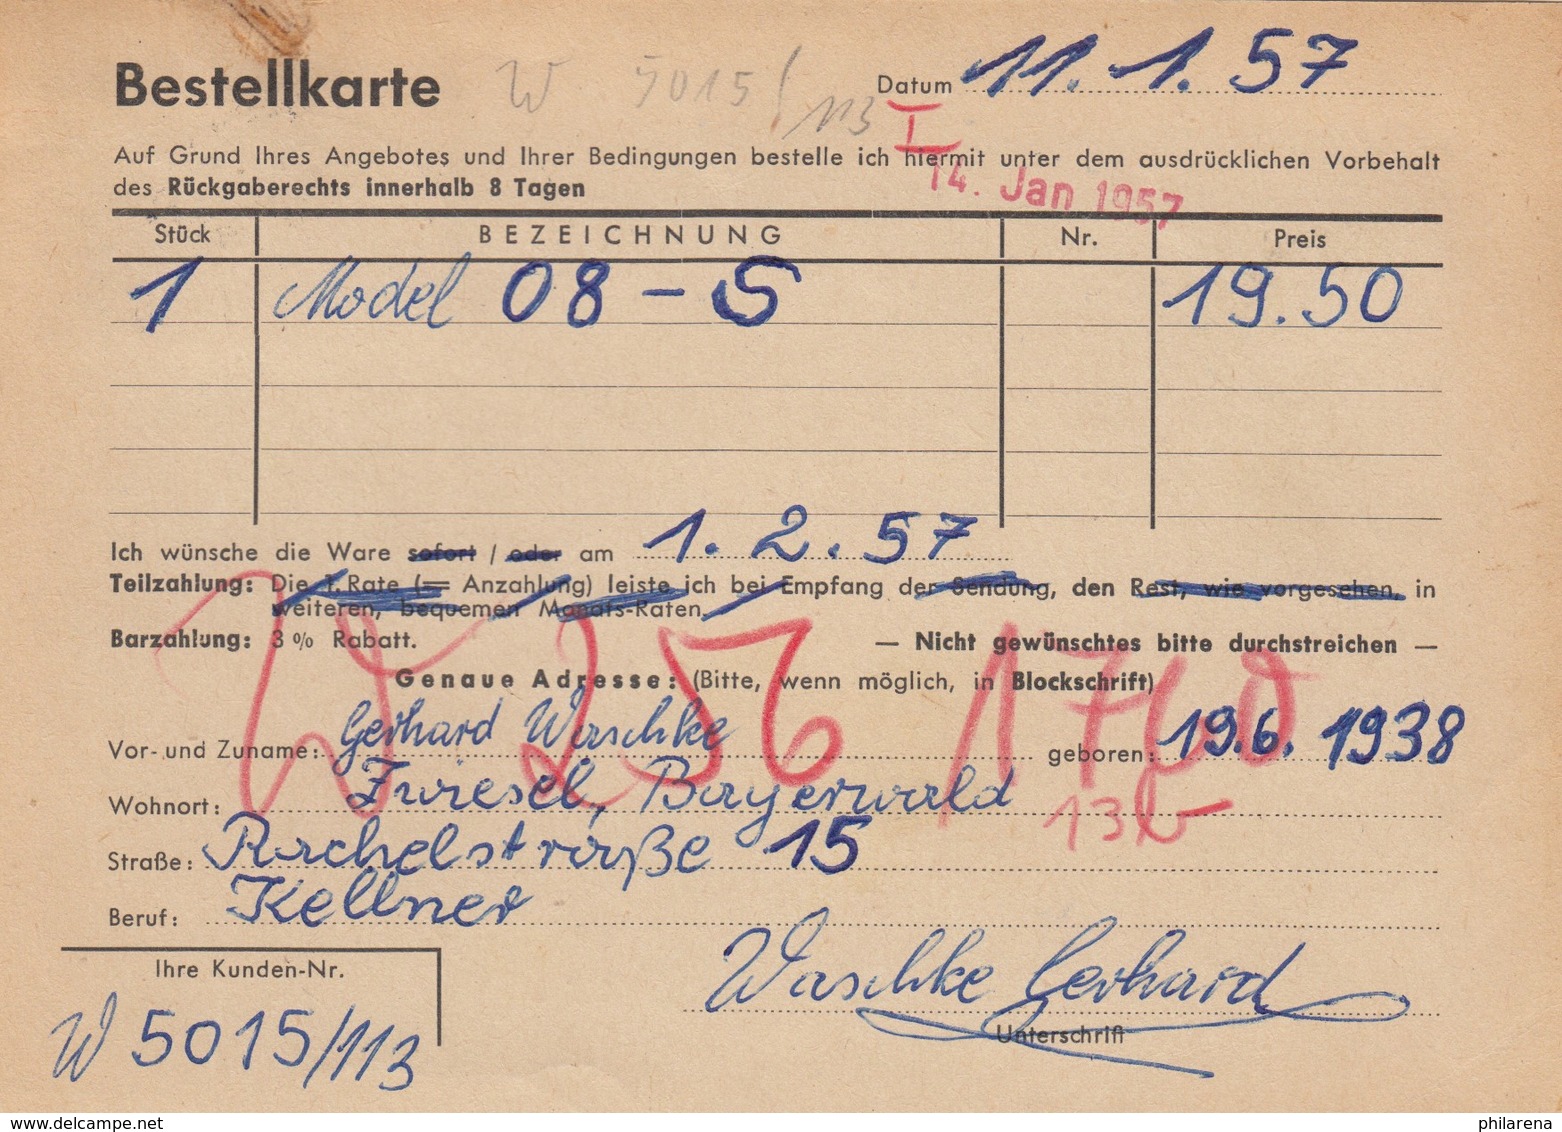 Bestellkarte W 5015/113 Datum 11.1.57
I
Auf Grund Ihres Angebotes und Ihrer Bedingungen bestelle ich hiermit unter dem ausdrücklichen Vorbehalt
des Rückgaberechts innerhalb 8 Tagen
14. Jan 1957
Stück BEZEICHNUNG Nr. Preis
1 Model 08-S 19.50
Ich wünsche die Ware sofort / oder am 1.2.57
Teilzahlung: Die 1. Rate (= Anzahlung) leiste ich bei Empfang der Sendung, den Rest, wie vorgesehen, in
weiteren, bequemen Monats-Raten.
Barzahlung: 3 % Rabatt. — Nicht gewünschtes bitte durchstreichen —
W 256 1760
Genaue Adresse: (Bitte, wenn möglich, in Blockschrift)
Vor- und Zuname: Gerhard Waschke geboren: 19.6.1938
Wohnort: Zwiesel, Bayerwald
13b
Straße: Rachelstraße 15
Beruf: Kellner
Ihre Kunden-Nr.
Waschke Gerhard
Unterschrift
W 5015/113
www.delcampe.net
philarena